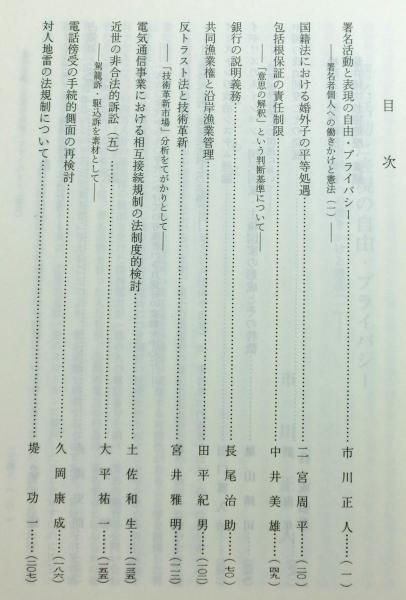 目次
署名活動と表現の自由・プライバシー……市川正人……(一)
――署名者個人への働きかけと憲法(一)――
国籍法における婚外子の平等処遇……二宮周平……(二〇)
包括根保証の責任制限……中井美雄……(四九)
――「意思の解釈」という判断基準について――
銀行の説明義務……長尾治助……(七〇)
共同漁業権と沿岸漁業管理……田平紀男……(一〇二)
反トラスト法と技術革新……宮井雅明……(一一二)
――「技術革新市場」分析をてがかりとして――
電気通信事業における相互接続規制の法制度的検討……土佐和生……(一三五)
近世の非合法的訴訟(五)……大平祐一……(一五五)
――駕籠訴・駆込訴を素材として――
電話傍受の手続的側面の再検討……久岡康成……(一八六)
対人地雷の法規制について……堤功一……(二〇七)